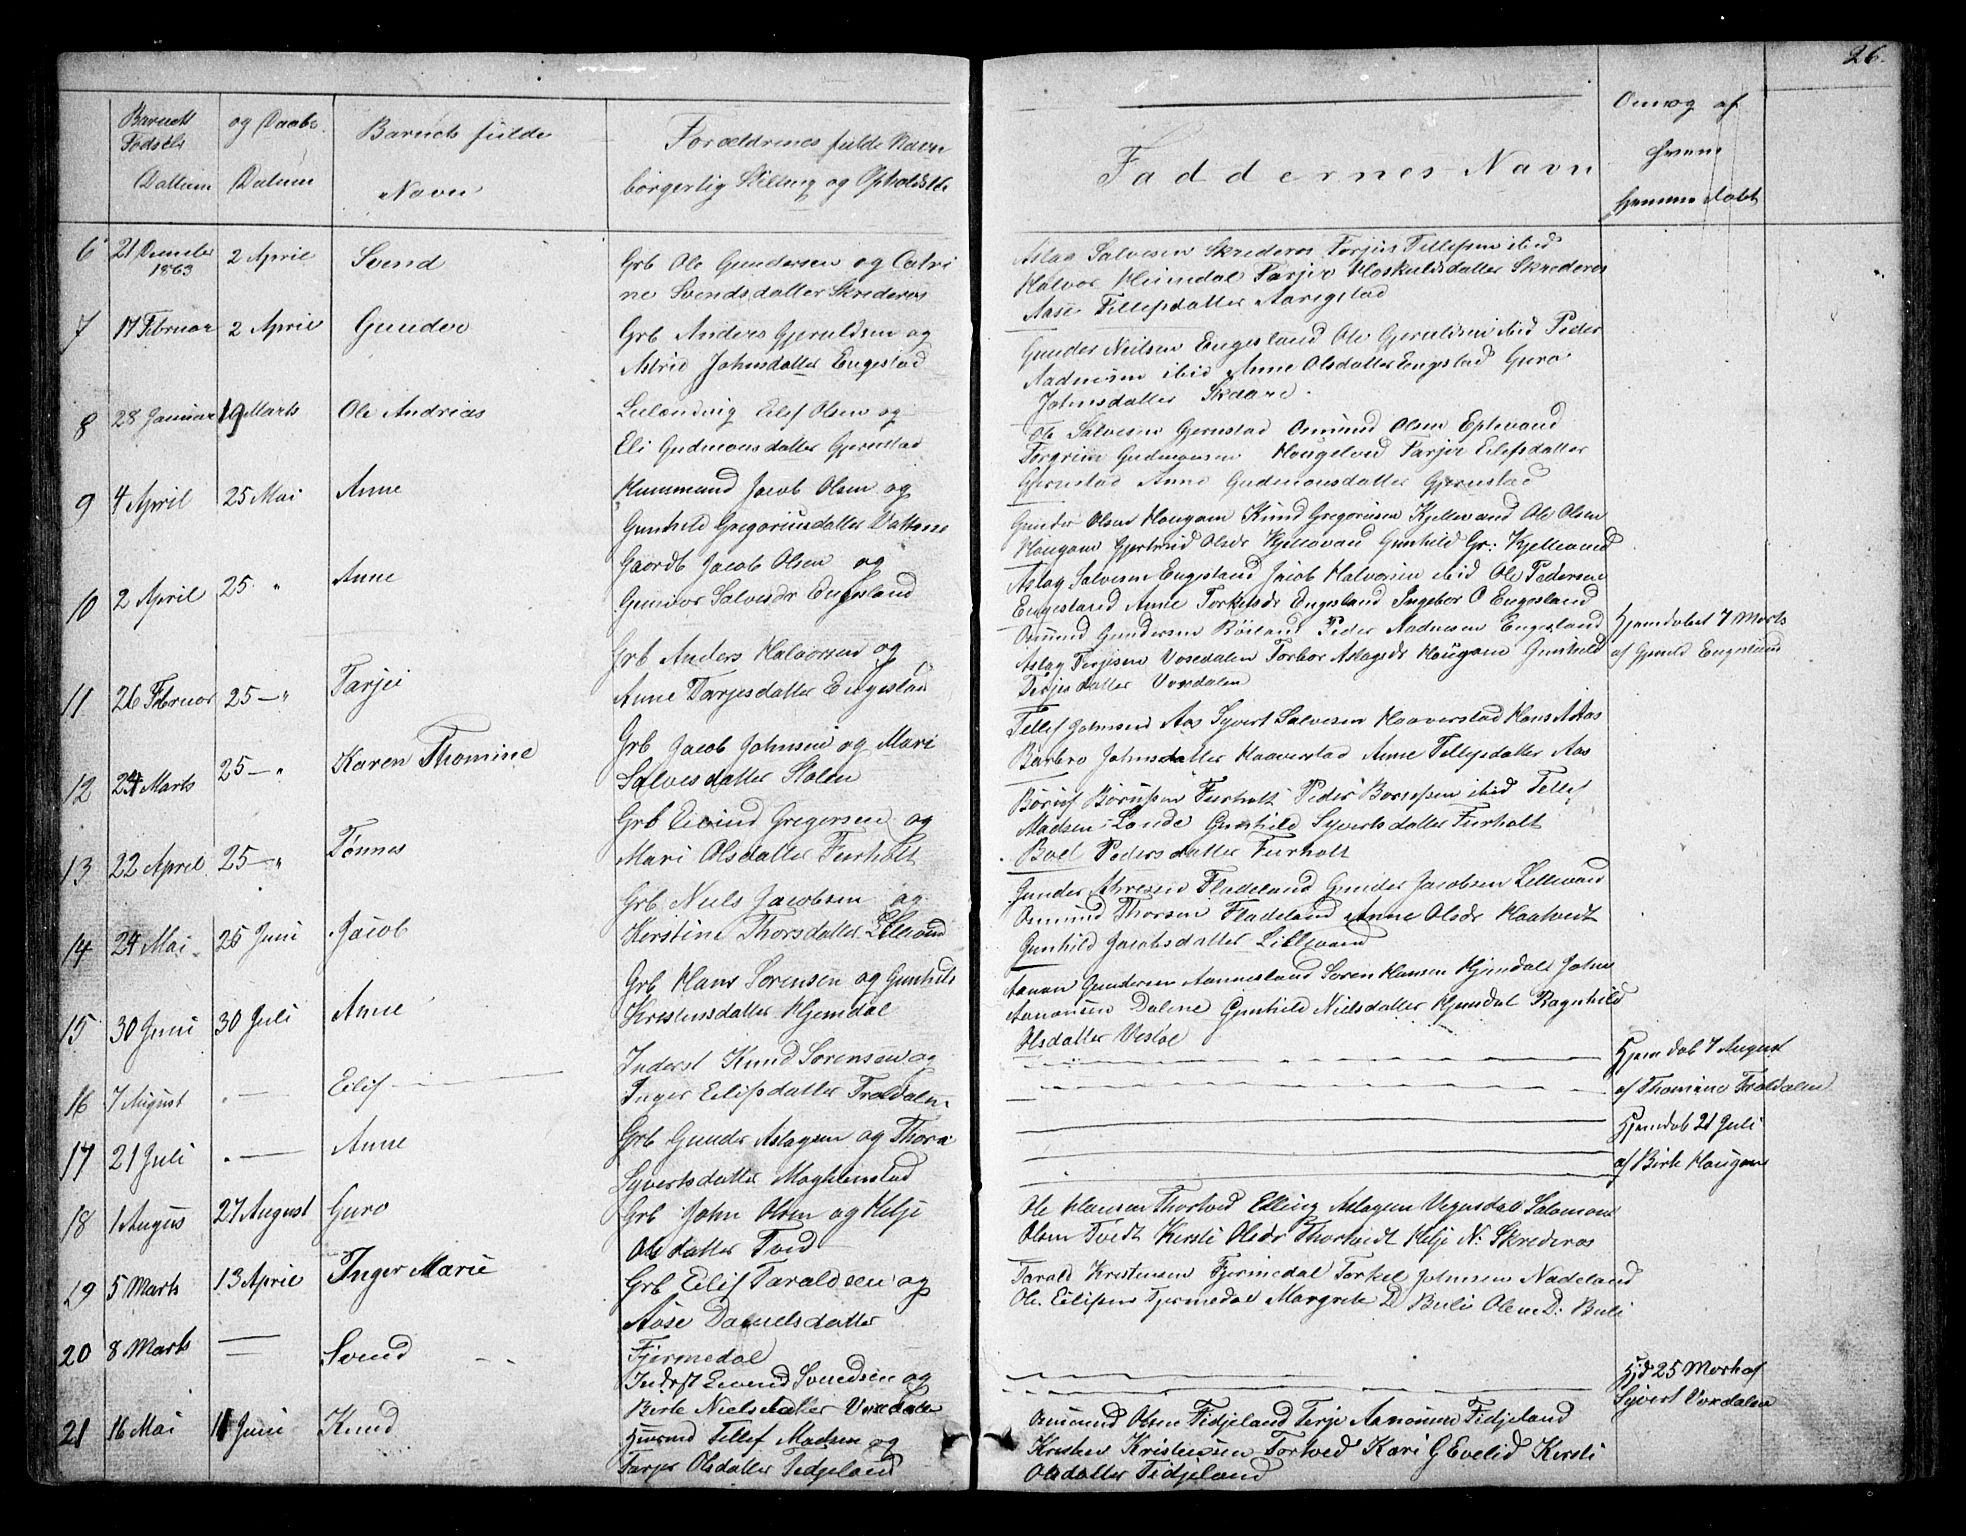 26.
Barnets
Fødsels
Dattum
og Daabs
Datum
Barnets fulde
Navn
Forældrenes fulde Navn
borgerlig Stilling og Opholdsst
Faddernes Navn
Om og af
hvem
hjemmedøbt
6 21 December 1863 2 April Svend
Grb Ole Gundersen og Catri
ne Svendsdatter Skrederos
Aslag Salvesen Skrederos Torjus Tellefsen ibid
Halvor Heimdal Tarjer Hoskuldsdatter Skrederos
Aase Tellefsdatter Aarigstad
7 17 Februar 2 April Gunder
Grb Anders Gjeruldsen og
Astrid Johnsdatter Engestad
Gunder Neilsen Engesland Ole Gjeruldsen ibid Peder
Aadnesen ibid Anne Olsdatter Engestad Guro
Johnsdatter Skaare.
8 28 Januar 19 Marts Ole Andreas
Eilef Olsen og
Eli Gudmonsdatter Gjerustad
Ole Salvesen Gjerustad Osmund Olsen Eptevand
Torgrim Gudmonsen Haugelvid Tarjer Eilefsdatter
Gjerustad Anne Gudmonsdatter Gjerustad
9 4 April 25 Mai Anne
Huusmand Jacob Olsen og
Gunhild Gregoriusdatter Vattne
Gunder Olsen Hougom Knud Gregoriusen Kjellevand Ole Olsen
Hougom Gjertrud Olsdr Kjellevand Gunhild Gr: Kjellevand
10 2 April 25 " Anne
Gaardb Jacob Olsen og
Gunvor Salvesdr Engesland
Aslag Salvesen Engesland Jacob Halvorsen ibid Ole Pedersen
Engesland Anne Torkelsdr Engesland Ingebor O Engesland
11 26 Februar 25 — " Tarjei
Grb Anders Halvorsen og
Anne Tarjesdatter Engesland
Osmund Gundersen Røisland Peder Aadnesen Engesland
Aslag Terjesen Vosedalen Torbor Aslagsdr Hougom Gunhild
Terjesdatter Vosedalen
Hjemdøbet 7 Marts
af Gjeruld Engesland
12 24 Marts 25 — " Karen Thomine
Grb Jacob Johnsen og Mari
Salvesdatter Stolen
Tellef Johnsen Aas Syvert Salvesen Haaverstad Hans A Aas
Barbro Johnsdatter Haaverstad Anne Tellefsdatter Aas
13 22 April 25 — " Tønnes
Grb Eivind Gregersen og
Mari Olsdatter Furholt
Børuf Børufsen Furholt Peder Borufsen ibid Tellef
Madsen Lande Gunhild Syvertsdatter Furholt
Boel Pedersdatter Furholt
14 24 Mai 25 Juni Jacob
Grb Niels Jacobsen og
Kirstine Thorsdatter Lillevand
Gunder Fladeland Gunder Jacobsen Lillevand
Osmund Thorsen Fladeland Anne Olsdr Haatvedt
Gunhild Jacobsdatter Lillevand
15 30 Juni 30 Juli Anne
Grb Hans Sorensen og Gunhild
Kristensdatter Hjemdal
Aanon Gundersen Aannesland Soren Hansen Hjemdal Johns
Aanonsen Dalene Gunhild Nielsdatter Hjemdal Ragnhild
Olsdatter Vestøl
16 7 August . — Eilif
Inderst Knud Sorensen og
Inger Eilifsdatter Troldalen
Hjemdøb 7 August
af Thomine Troldalen
17 21 Juli . — Anne
Grb Gunder Aslagsen og Thora
Syvertsdatter
Hjemdøb 21 Juli
af Birte Hougom
18 1 Augus 27 August Guro
Grb John Olsen og Helje
Olsdatter Tved
Ole Hansen Thortved Elling Aslagsen Vegusdal Salomon
Olsen Tvedt Kersti Olsdr Thortvedt Helje N: Skrederos
19 5 Marts 13 April Inger Marie
Grb Eilif Taraldsen og
Aase Danielsdatter
Fjermedal
Tarald Kristensen Fjermedal Torkel Johnsen Nadeland
Ole Eilifsen Fjermedal Margrete D Beuli Olene D: Beuli
20 8 Marts — Svend
Inderst Eivend Svendsen og
Birte Nielsdatter Vosedalen
Hjd 25 Mars af
Syvert Vosedalen
21 16 Mai 11 Juni Knud
Huusmd Tellef Madsen og
Tarjer Olsdatter Fidjeland
Osmund Olsen Fidjeland Terje Aanonsen Fidjeland
Kristen Kristensen Tortved Kari G Evelid Kersti
Olsdatter Fidjeland